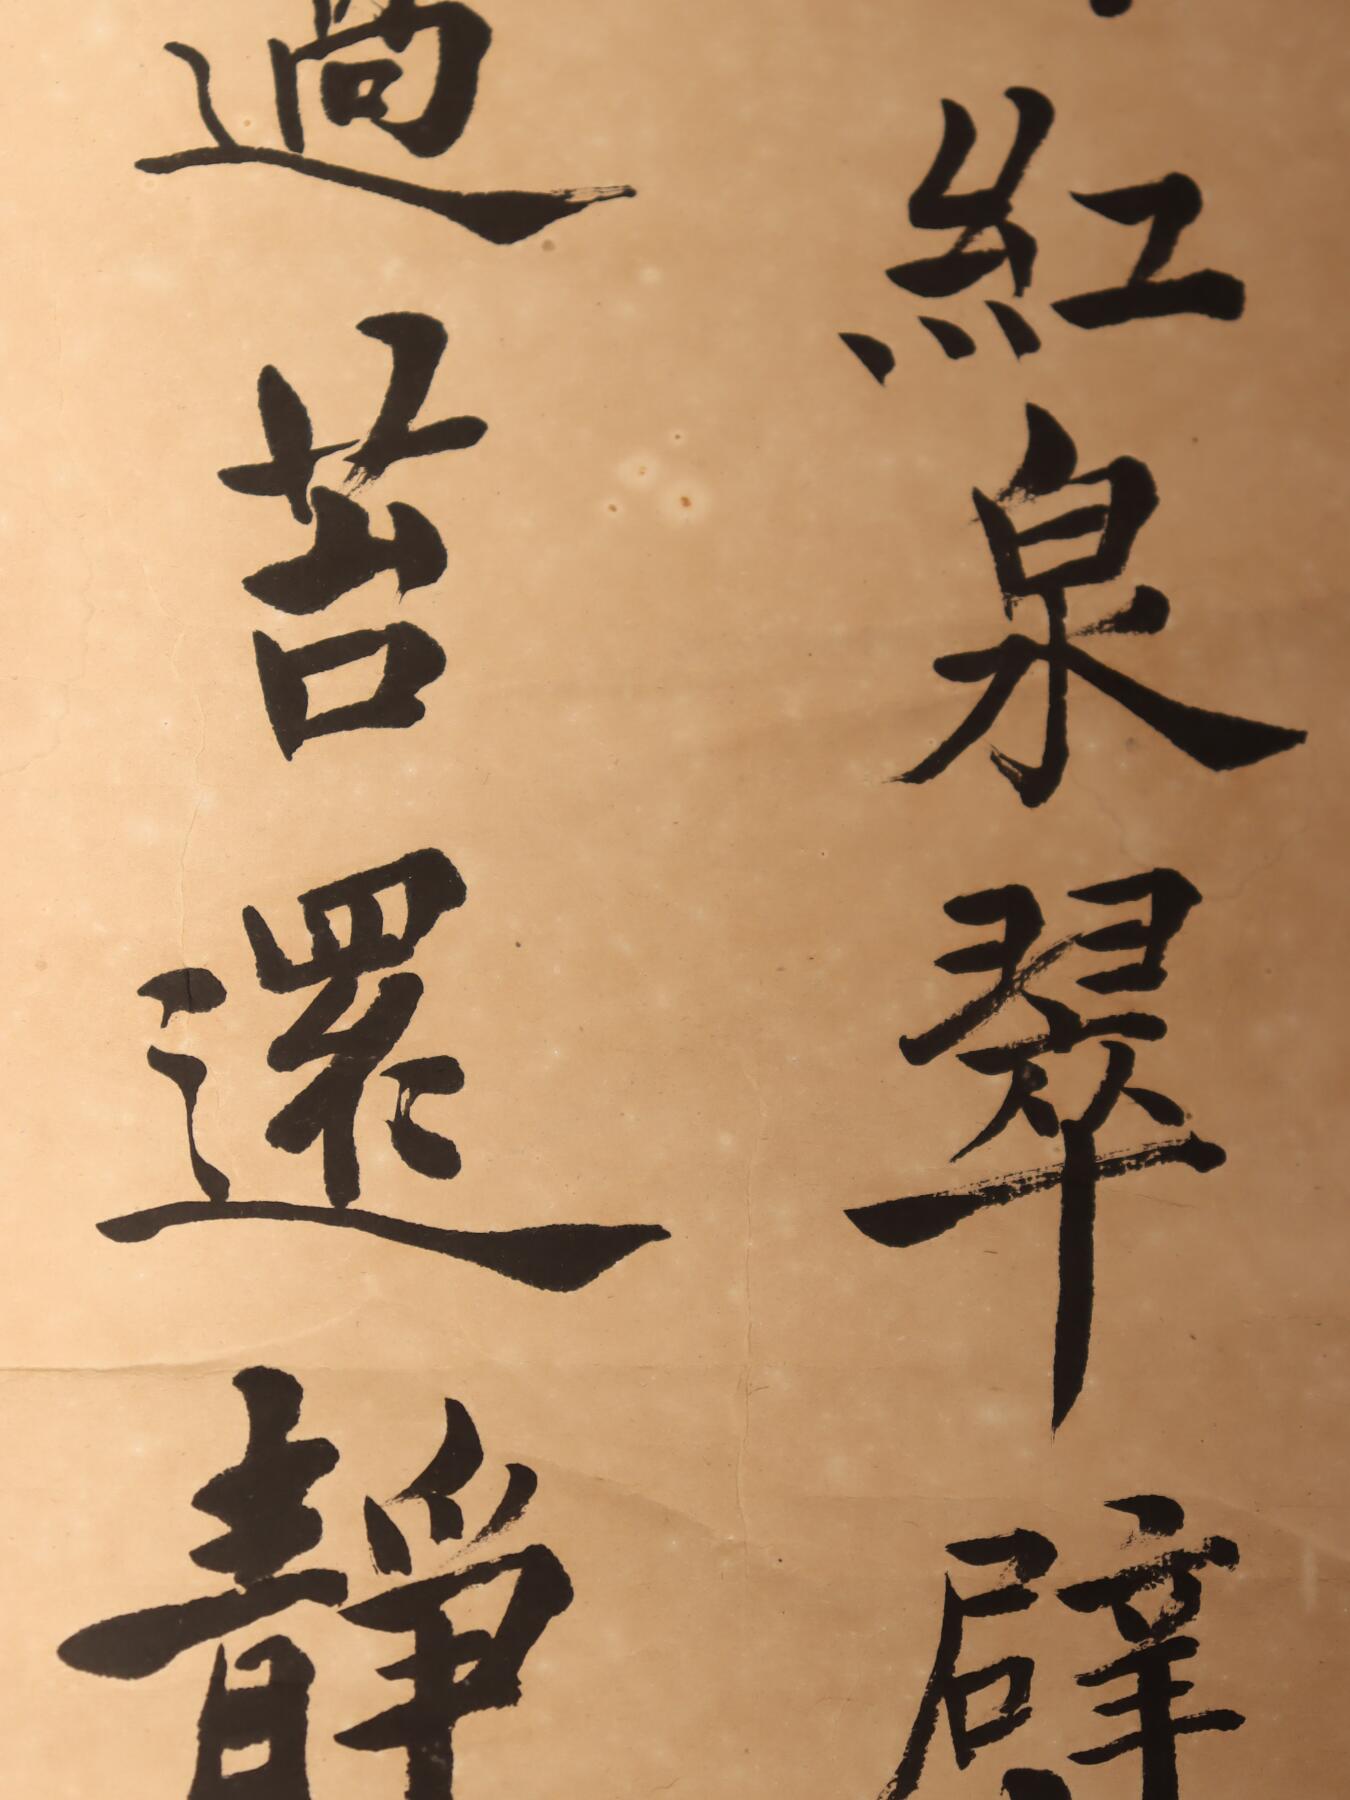 紅泉翠壁
過苔還靜